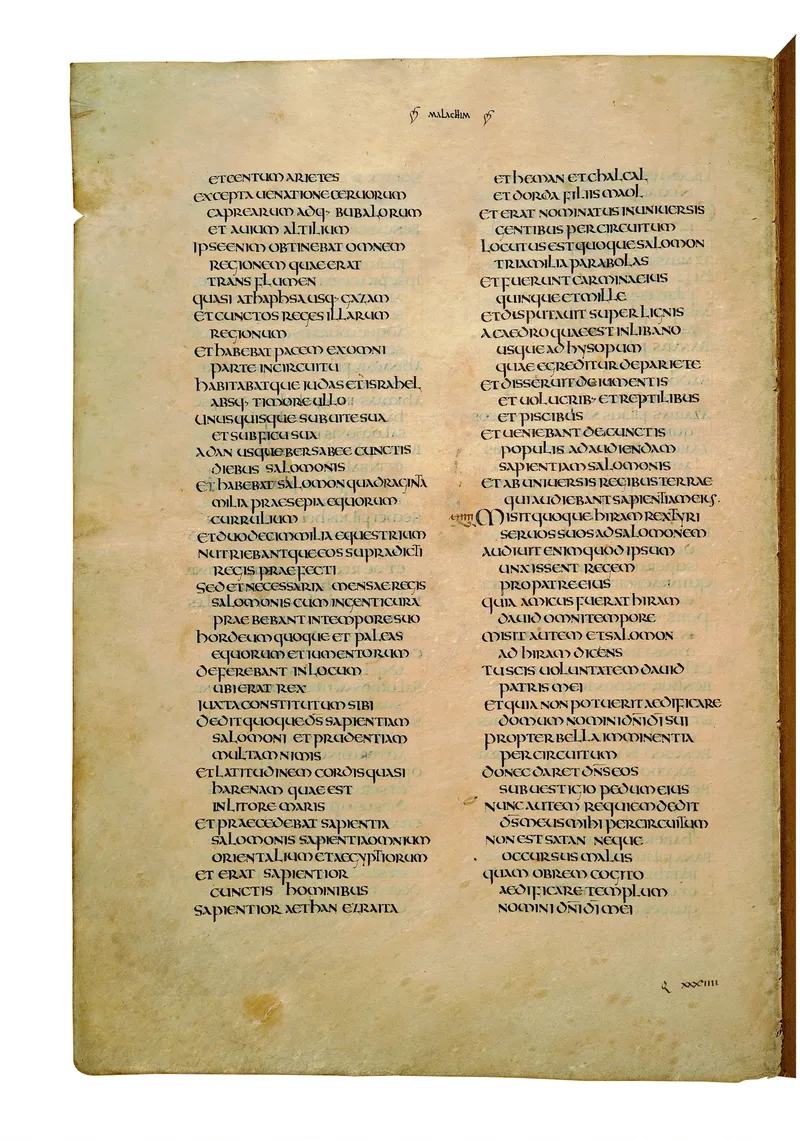 MALACHIM
ET CENTUM ARIETES
EXCEPTA UENATIONE CERUORUM
CAPREARUM ADQ· BUBALORUM
ET AUIUM ALTILIUM
IPSE ENIM OBTINEBAT OMNEM
REGIONEM QUAE ERAT
TRANS FLUMEN
QUASI ATHAPHSA USQ· GAZAM
ET CUNCTOS REGES ILLARUM
REGIONUM
ET HABEBAT PACEM EX OMNI
PARTE IN CIRCUITU
HABITABATQUE IUDAS ET ISRAHEL
ABSQ· TIMORE ULLO
UNUSQUISQUE SUB UITE SUA
ET SUB FICU SUA
A DAN USQUE BERSABEE CUNCTIS
DIEBUS SALOMONIS
ET HABEBAT SALOMON QUADRAGINTA
MILIA PRAESEPIA EQUORUM
CURRULIUM
ET DUODECIM MILIA EQUESTRIUM
NUTRIEBANTQUE EOS SUPRADICTI
REGIS PRAEFECTI
SED ET NECESSARIA MENSAE REGIS
SALOMONIS CUM INGENTI CURA
PRAEBEBANT IN TEMPORE SUO
HORDEUM QUOQUE ET PALEAS
EQUORUM ET IUMENTORUM
DEFEREBANT IN LOCUM
UBI ERAT REX
IUXTA CONSTITUTUM SIBI
DEDIT QUOQUE D̄S SAPIENTIAM
SALOMONI ET PRUDENTIAM
MULTAM NIMIS
ET LATITUDINEM CORDIS QUASI
HARENAM QUAE EST
IN LITORE MARIS
ET PRAECEDEBAT SAPIENTIA
SALOMONIS SAPIENTIA OMNIUM
ORIENTALIUM ET AEGYPTIORUM
ET ERAT SAPIENTIOR
CUNCTIS HOMINIBUS
SAPIENTIOR AETHAN EZRAITA
ET HEMAN ET CHALCAL
ET DORDA FILIIS MAOL
ET ERAT NOMINATUS IN UNIUERSIS
GENTIBUS PER CIRCUITUM
LOCUTUS EST QUOQUE SALOMON
TRIA MILIA PARABOLAS
ET FUERUNT CARMINA EIUS
QUINQUE ET MILLE
ET DISPUTAUIT SUPER LIGNIS
A CAEDRO QUAE EST IN LIBANO
USQUE AD HYSOPUM
QUAE EGREDITUR DE PARIETE
ET DISSERUIT DE IUMENTIS
ET UOLUCRIB· ET REPTILIBUS
ET PISCIBUS
ET UENIEBANT DE CUNCTIS
POPULIS AD AUDIENDAM
SAPIENTIAM SALOMONIS
ET AB UNIUERSIS REGIBUS TERRAE
QUI AUDIEBANT SAPIENTIAM EIUS·
MISIT QUOQUE HIRAM REX TYRI
SERUOS SUOS AD SALOMONEM
AUDIUIT ENIM QUOD IPSUM
UNXISSENT REGEM
PRO PATRE EIUS
QUIA AMICUS FUERAT HIRAM
DAUID OMNI TEMPORE
MISIT AUTEM ET SALOMON
AD HIRAM DICENS
TU SCIS UOLUNTATEM DAUID
PATRIS MEI
ET QUIA NON POTUERIT AEDIFICARE
DOMUM NOMINI D̄N̄I D̄I SUI
PROPTER BELLA IMMINENTIA
PER CIRCUITUM
DONEC DARET D̄N̄S EOS
SUB UESTIGIO PEDUM EIUS
NUNC AUTEM REQUIEM DEDIT
D̄S MEUS MIHI PER CIRCUITUM
NON EST SATAN NEQUE
OCCURSUS MALUS
QUAM OBREM COGITO
AEDIFICARE TEMPLUM
NOMINI D̄N̄I D̄I MEI
Q XXXIIII